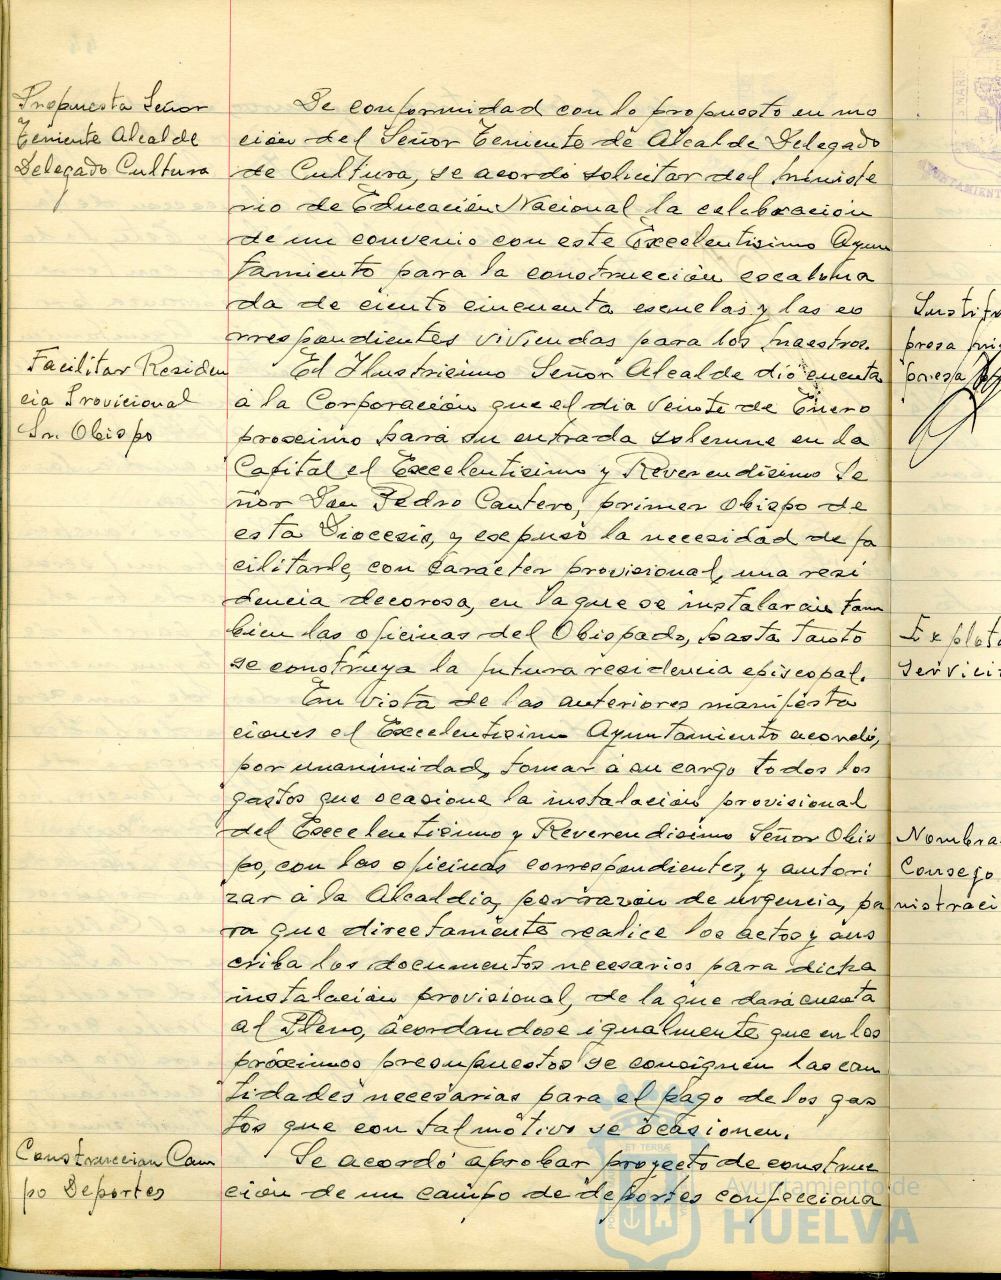 Propuesta Señor
Teniente Alcalde
Delegado Cultura
De conformidad con lo propuesto en mo
ción del Señor Teniente de Alcalde Delegado
de Cultura, se acordó solicitar del Ministe
rio de Educación Nacional la celebración
de un convenio con este Excelentisimo Ayun
tamiento para la construcción escalona
da de ciento cincuenta escuelas y las co
rrespondientes viviendas para los maestros.
Facilitar Residen
cia Provicional
Sr. Obispo
El Ilustrisimo Señor Alcalde dió cuenta
á la Corporación que el dia veinte de Enero
proximo hará su entrada solemne en la
Capital el Excelentisimo y Reverendisimo Se
ñor Don Pedro Cantero, primer Obispo de
esta Diocesis, y expuso la necesidad de fa
cilitarle, con carácter provisional, una resi
dencia decorosa, en la que se instalarán tam
bien las oficinas del Obispado, hasta tanto
se construya la futura residencia episcopal.
En vista de las anteriores manifesta
ciones el Excelentisimo Ayuntamiento acordó,
por unanimidad, tomar á su cargo todos los
gastos que ocasione la instalación provisional
del Excelentisimo y Reverendisimo Señor Obis
po, con las oficinas correspondientes, y autori
zar á la Alcaldia, por razón de urgencia, pa
ra que directamente realice los actos y sus
criba los documentos necesarios para dicha
instalación provisional, de la que dará cuenta
al Pleno, acordandose igualmente que en los
próximos presupuestos se consignen las can
tidades necesarias para el pago de los gas
tos que con tal motivo se ocasionen.
Construccion Cam
po Deportes
Se acordó aprobar proyecto de construc
ción de un campo de deportes confecciona
Ayuntamiento de
HUELVA
presa
Explota
Servici
Nombra
Consejo
nistraci